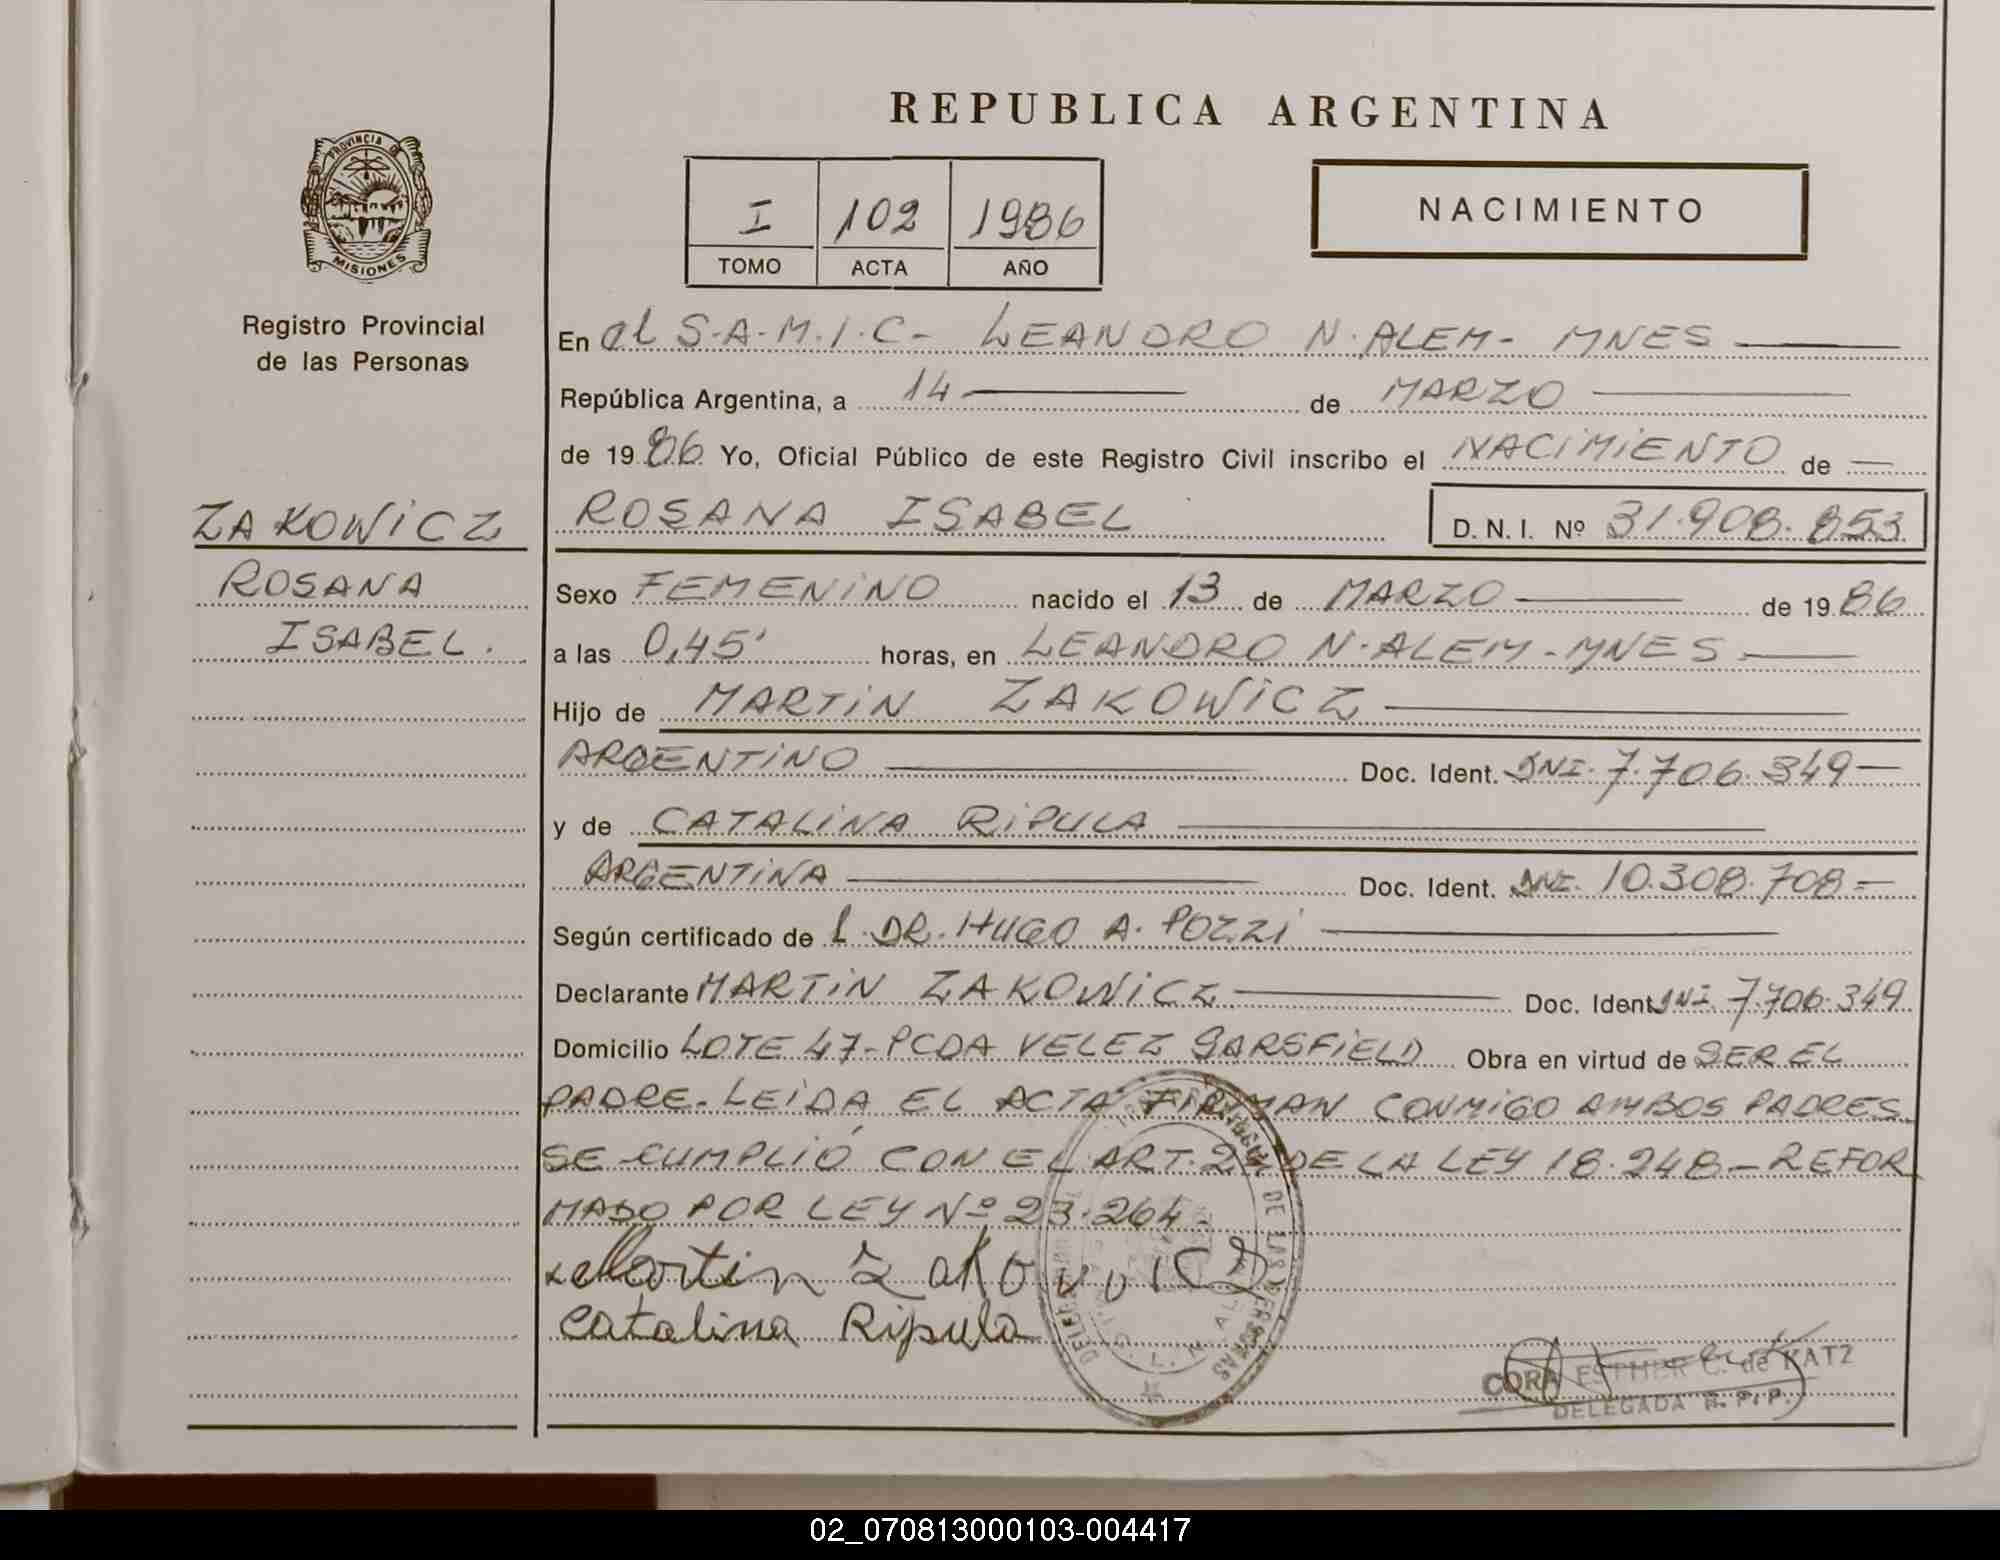 REPUBLICA ARGENTINA
PROVINCIA DE
MISIONES
Registro Provincial
de las Personas
I 102 1986
TOMO ACTA AÑO
NACIMIENTO
ZAKOWICZ
ROSANA
ISABEL.
En el S.A.M.I.C- LEANDRO N.ALEM- MNES
República Argentina, a 14 de MARZO
de 1986 Yo, Oficial Público de este Registro Civil inscribo el NACIMIENTO de
ROSANA ISABEL D. N. I. Nº 31.908.853
Sexo FEMENINO nacido el 13 de MARZO de 1986
a las 0,45' horas, en LEANDRO N.ALEM-MNES
Hijo de MARTIN ZAKOWICZ
ARGENTINO Doc. Ident. DNI. 7.706.349
y de CATALINA RIPULA
ARGENTINA Doc. Ident. DNI. 10.308.708=
Según certificado de DR. HUGO A. POZZI
Declarante MARTIN ZAKOWICZ Doc. Ident DNI 7.706.349
Domicilio LOTE 47-PCDA VELEZ SARSFIELD Obra en virtud de SER EL
PADRE. LEIDA EL ACTA FIRMAN CONMIGO AMBOS PADRES
SE CUMPLIÓ CON EL ART. DE LA LEY 18.248- REFOR
MADO POR LEY Nº 23.264-
Martin Zakowicz
Catalina Ripula
DE LAS PERSONAS
CORA ESTHER C. de KATZ
DELEGADA R. P. P.
02_070813000103-004417